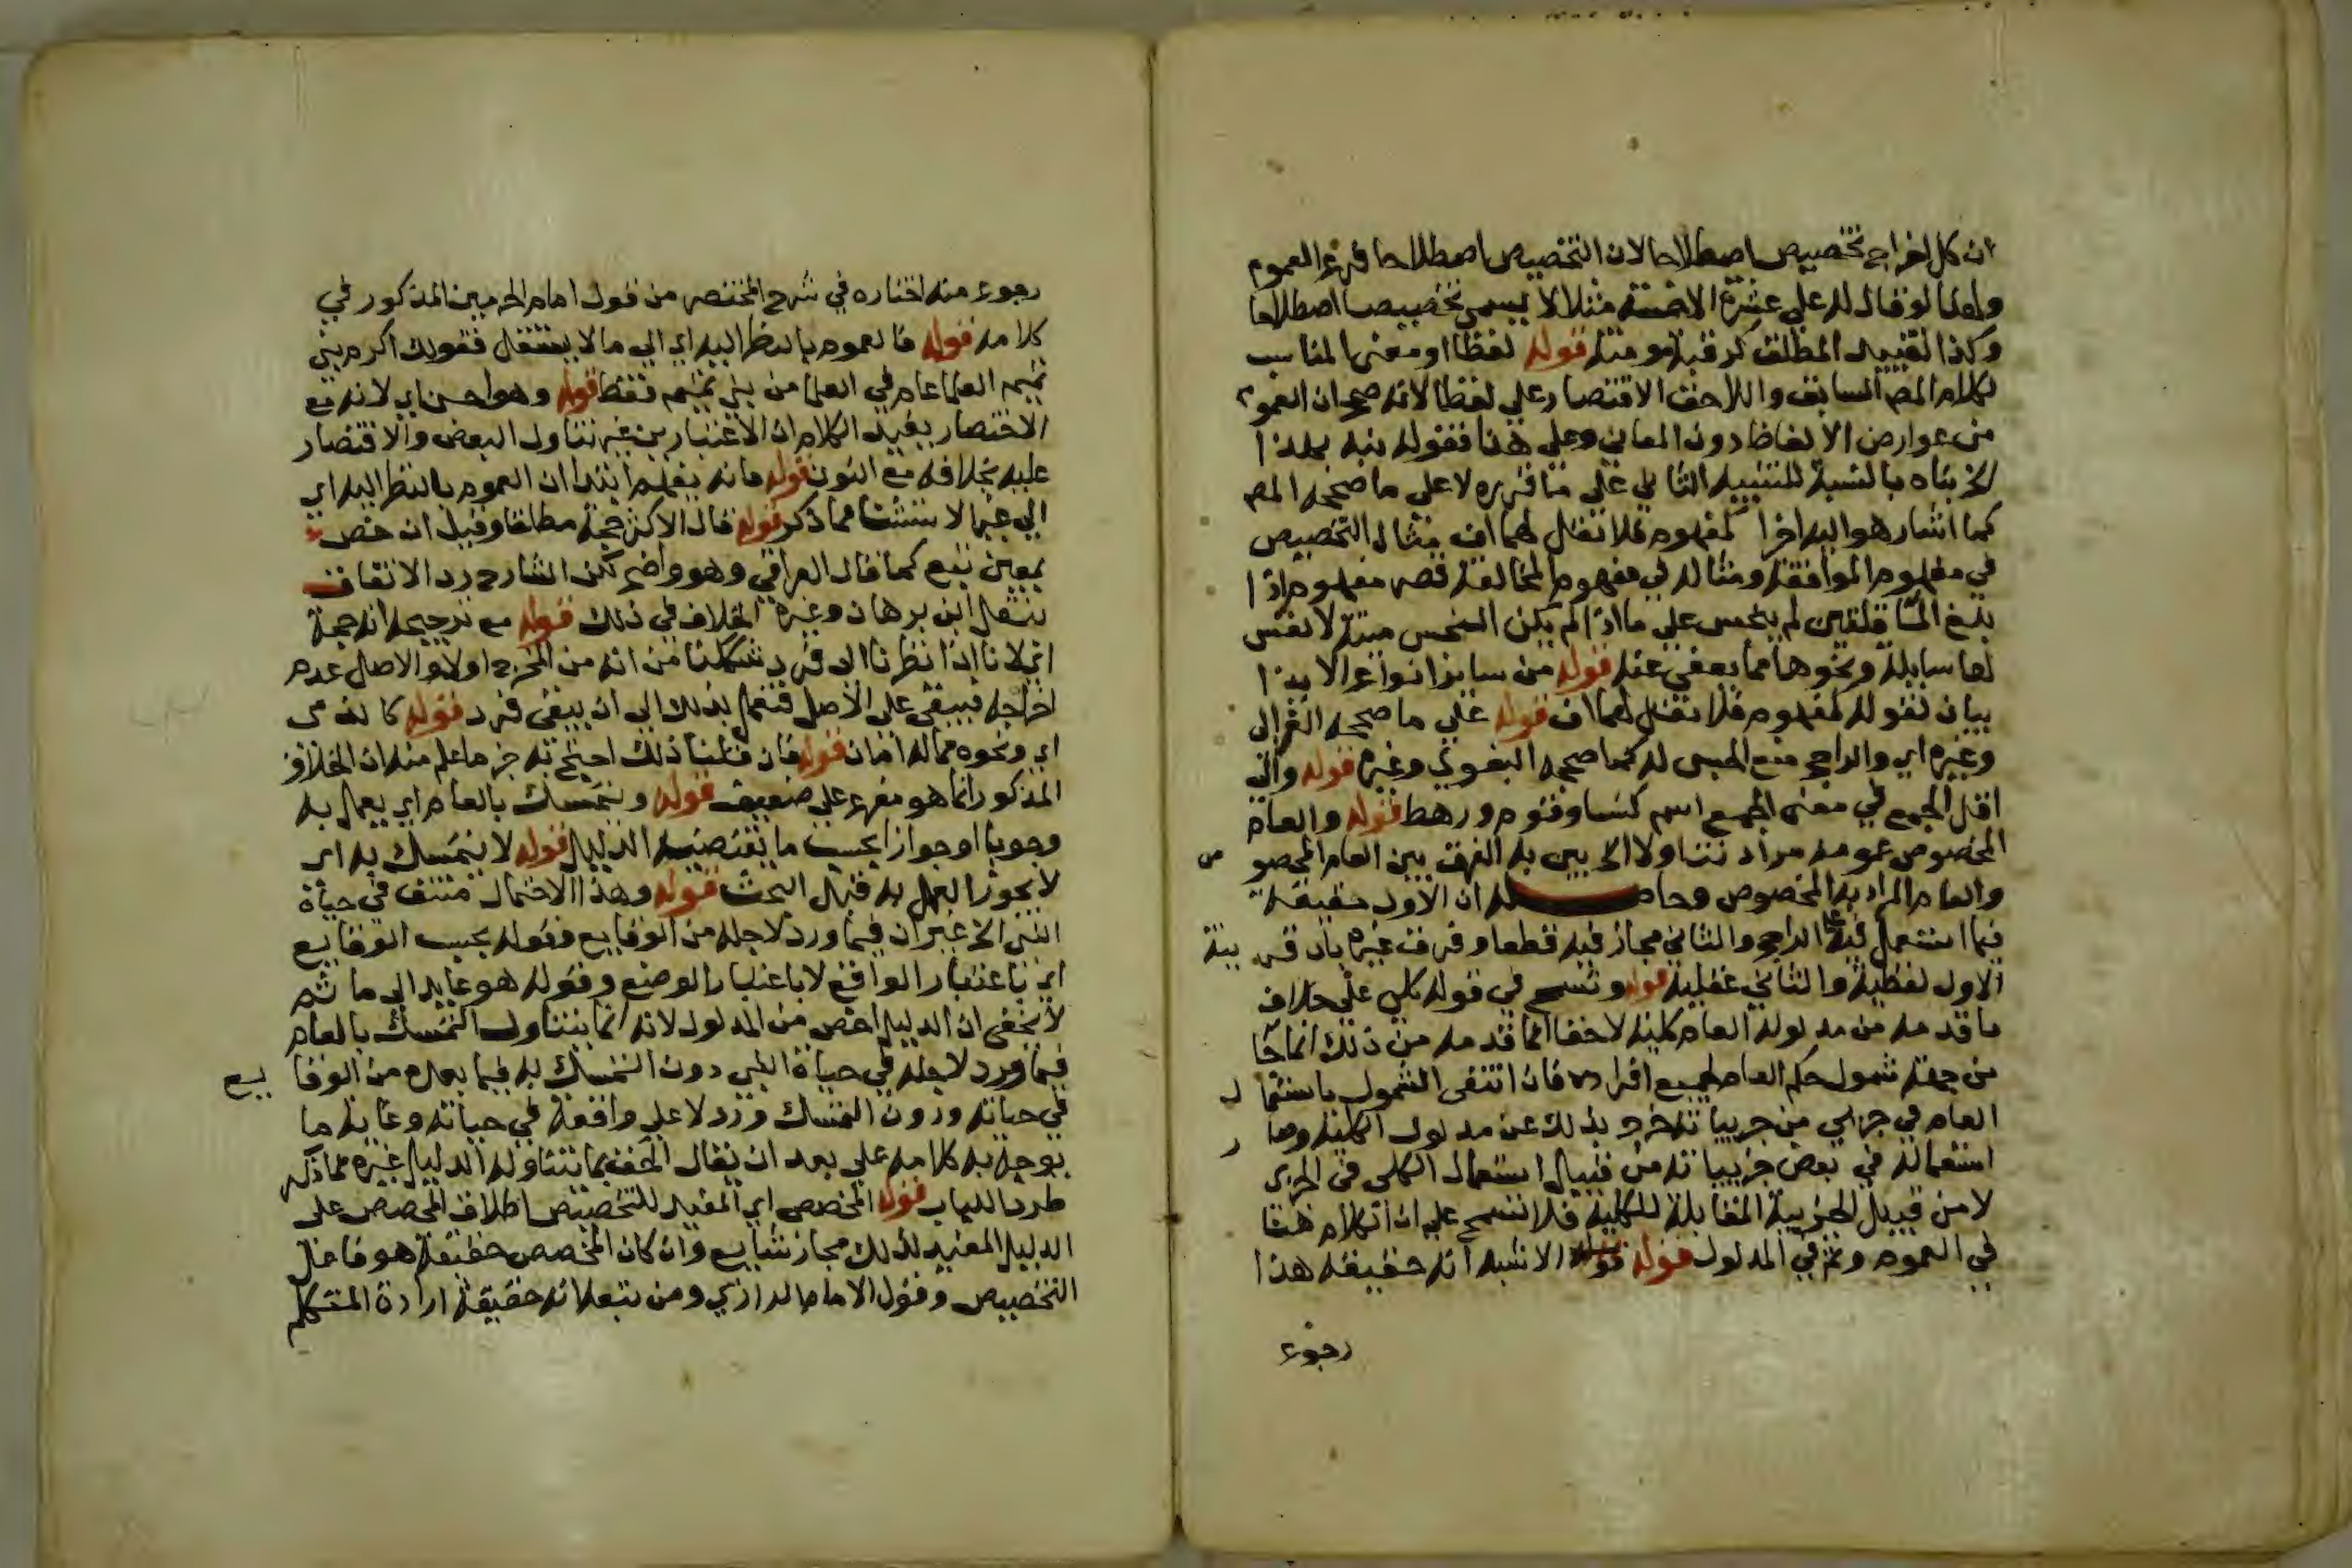 ان كل اخراج تخصيص اصطلاحا لان التخصيص اصطلاحا فرع العموم
ولهذا لو قال له علي عشرة الا خمسة مثلا لا يسمى تخصيصا اصطلاحا
وكذا تقييد المطلق كرقبة مومنة قوله لفظا او معنى المناسب
لكلام المص السابق واللاحق الاقتصار على لفظا لانه صحح ان العموم
من عوارض الالفاظ دون المعاني وعلى هذا فقوله نبه بهذا
الخ بناه بالنسبة للتنبيه الثاني على ما قرره لا على ما صححه المص
كما اشار هو اليه اخرا كمفهوم فلا تقل لهما اف مثال التخصيص
في مفهوم الموافقة ومثاله في مفهوم المخالفة قصر مفهوم اذا
بلغ الماء قلتين لم ينجس على ما اذا لم يكن النجس ميتة لا نفس
لها سايلة ونحوها مما يعفى عنه قوله من ساير انواع الايذا
بيان لقوله لمفهوم فلا تقل لهما اف قوله على ما صححه الغزالي
وغيره اي والراجح منع الحبس له كما صححه البغوي وغيره قوله والى
اقل الجمع في معنى الجمع اسم كنسا وقوم ورهط قوله والعام
المخصوص عمومه مراد تناولا الخ بين به الفرق بين العام المخصو ص
والعام المراد به الخصوص وحاصله ان الاول حقيقة
فيما استعمل فيه على الراجح والثاني مجاز فيه قطعا وفرق غيره بان قر ينة
الاول لفظية والثاني عقلية قوله وتسمح في قوله كلي على خلاف
ما قدمه من مدلوله العام كلية لا خفا انما قدمه من ذلك انما جا
من جهة شمول حكم العام لجميع افراده فان انتفى الشمول باستعما ل
العام في جزئي من جزيياته خرج بذلك عن مدلول الكلية وصا ر
استعماله في بعض جزيياته من قبيل استعمال الكلي في الجزي
لا من قبيل الجزيية المقابلة للكلية فلا تسمح على ان الكلام هنا
في العموم وثم في المدلول قوله قوله الاشبه انه حقيقة هذا
رجوع
رجوع منه اختاره في شرح المختصر من قول امام الحرمين المذكور في
كلامه قوله فالعموم بالنظر اليه اي الى ما لا يستقل فقولك اكرم بني
تميم العلما عام في العلما من بني تميم فقط قوله وهو احسن اي لانه مع
الاختصار يفيد الكلام ان الاعتبارين غير تناول البعض والاقتصار
عليه بخلافه مع النون قوله فانه يفهم ابتدا ان العموم بالنظر اليه اي
الى غير ما لا يستثنا مما ذكر قوله قال الاكثر حجة مطلقا وقيل ان خص
بمعين تبع كما قال العراقي وهو واضح لكن الشارح رد الاتفاق
بنقل ابن برهان وغيره الخلاف في ذلك قوله مع ترجيحه انه حجة
اي لانا اذا نظرنا الى فرد شككنا من انه من المخرج اولا والاصل عدم
اخراجه فيبقى على الاصل فنعمل بذلك الى ان يبقى فرد قوله كالذمي
اي ونحوه مما له امان قوله فان قلنا ذلك احتج به جزما علم منه ان الخلاف
المذكور انما هو مفرع على ضعيف قوله ويتمسك بالعام اي يعمل به
وجوبا او جوازا بحسب ما يقتضيه الدليل قوله لا يتمسك به اي
لا يجوز العمل به قبل البحث قوله وهذا الاحتمال منتف في حياة
النبي الخ غير ان فيما ورد لاجله من الوقايع وقوله بحسب الوقايع
اي باعتبار الواقع لا باعتبار الوضع وقوله هو عايد الى ما ثم
لا يخفى ان الدليل اخص من المدلول لانه انما يتناول التمسك بالعام
فيما ورد لاجله في حياة النبي دون التمسك به فيما بعده من الوقا يع
في حياته ودون التمسك ورد لا على واقعة في حياته وغاية ما
يوجه به كلامه على بعد ان يقال الحق بما يتناوله الدليل غيره مما ذكر
طردا للباب قوله المخصص اي المفيد للتخصيص اطلاق المخصص على
الدليل المفيد لذلك مجاز شايع وان كان المخصص حقيقة هو فاعل
التخصيص وقول الامام الرازي ومن تبعه انه حقيقة ارادة المتكلم